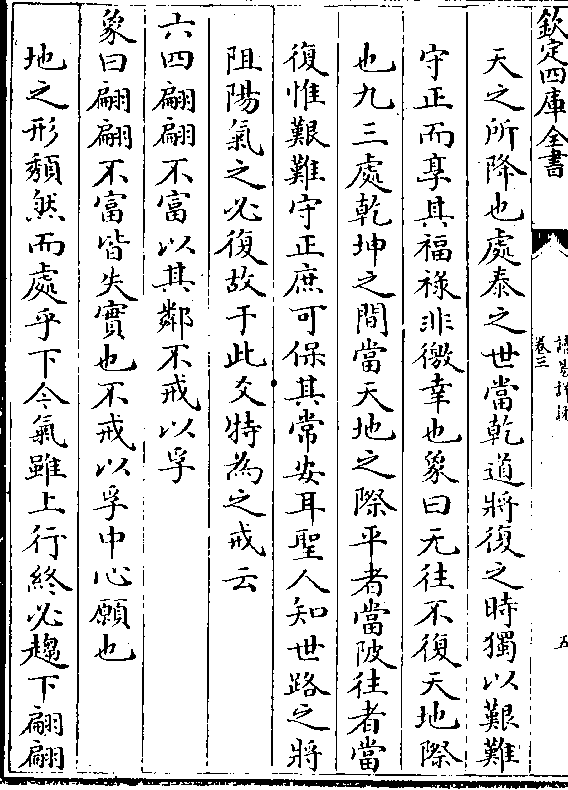 欽定四庫全書
卷三
五
天之所降也處泰之世當乾道將復之時獨以艱難
守正而享其福祿非徼幸也象曰无往不復天地際
也九三處乾坤之間當天地之際平者當陂往者當
復惟艱難守正庶可保其常安耳聖人知世路之將
阻陽氣之必復故于此爻特為之戒云
六四翩翩不富以其鄰不戒以孚
象曰翩翩不富皆失實也不戒以孚中心願也
地之形頽然而處乎下今氣雖上行終必趨下翩翩